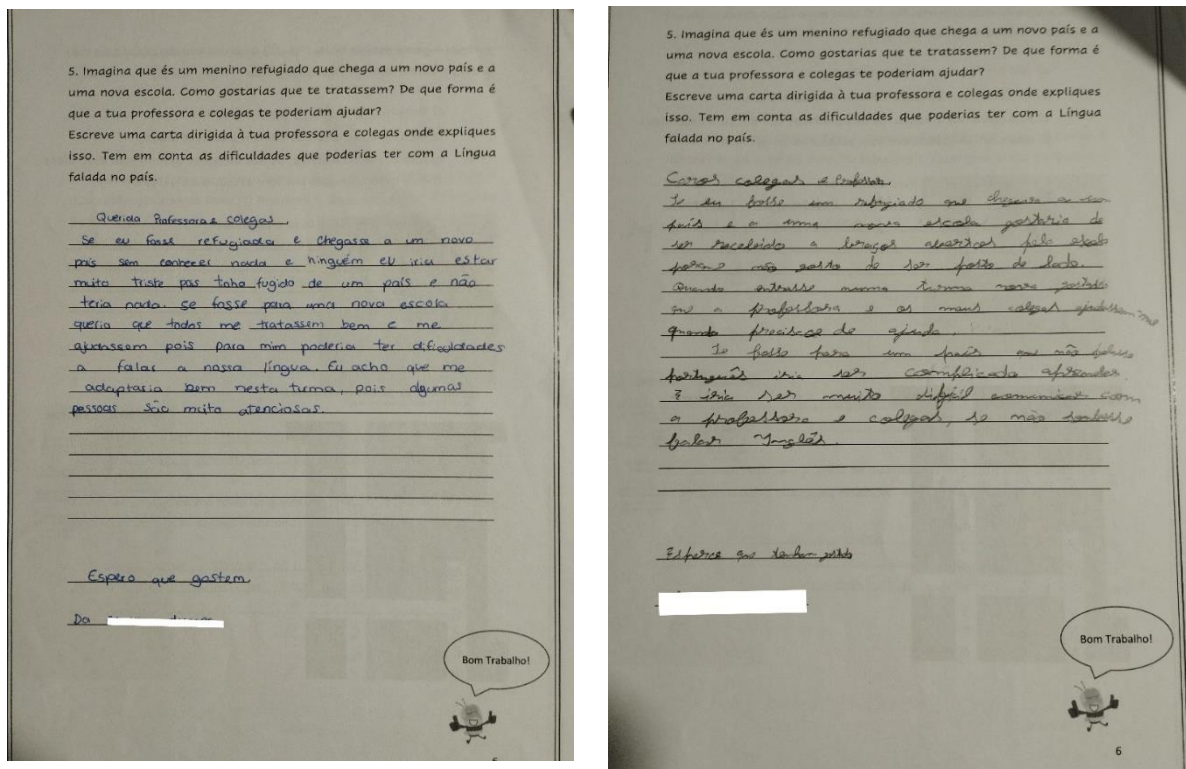 5. Imagina que és um menino refugiado que chega a um novo país e a
uma nova escola. Como gostarias que te tratassem? De que forma é
que a tua professora e colegas te poderiam ajudar?
Escreve uma carta dirigida à tua professora e colegas onde expliques
isso. Tem em conta as dificuldades que poderias ter com a Língua
falada no país.
Querida Professora e colegas,
Se eu fosse refugiada e chegasse a um novo
país sem conhecer nada e ninguém eu iria estar
muito triste pos tinha fugido de um país e não
teria nada. Se fosse para uma nova escola
queria que todos me tratassem bem e me
ajudassem pois para mim poderia ter dificuldades
a falar a nossa língua. Eu acho que me
adaptaria bem nesta turma, pois algumas
pessoas são muito atenciosas.
Espero que gostem,
Da
Bom Trabalho!
5. Imagina que és um menino refugiado que chega a um novo país e a
uma nova escola. Como gostarias que te tratassem? De que forma é
que a tua professora e colegas te poderiam ajudar?
Escreve uma carta dirigida à tua professora e colegas onde expliques
isso. Tem em conta as dificuldades que poderias ter com a Língua
falada no país.
Caros colegas e Professora,
Se eu fosse um refugiado que chegasse a um
país e a uma nova escola gostaria de
ser recebido a braços abertos pela escola
porque não gosto de ser posto de lado.
Quando entrasse numa turma nova gostaria
que a professora e os meus colegas ajudassem-me
quando precisace de ajuda.
Se fosse para um país que não falasse
português iria ser complicado aprender.
E iria ser muito difícil comunicar com
a professora e colegas, se não soubesse
falar Inglês.
que tenham gostado
Bom Trabalho!
6